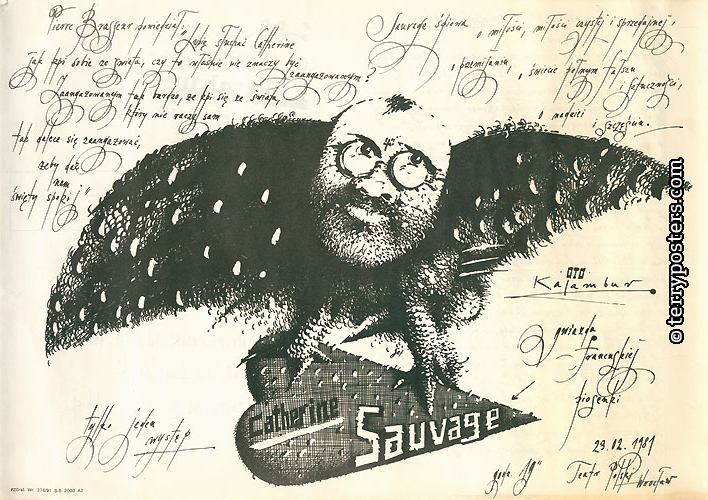 Pierre Brasseur powiedział:
"Lubię słuchać Catherine
Jak kpi sobie ze świata, czy to właśnie nie znaczy być
zaangażowanym?
Zaangażowanym tak bardzo, że kpi się ze świata,
który nie raczy sam
tak dalece się zaangażować,
żeby dać
nam
święty spokój"
Sauvage śpiewa
o miłości, miłości czystej i sprzedajnej,
o przemijaniu,
o świecie pełnym fałszu
i sztuczności,
o nadziei
i szczęściu.
OTO
Kalambur
gwiazda
francuskiej
piosenki
Catherine
Sauvage
tylko jeden
występ
23.02.1981
godz. 19°°
Teatr Polski
Wrocław
© terryposters.com